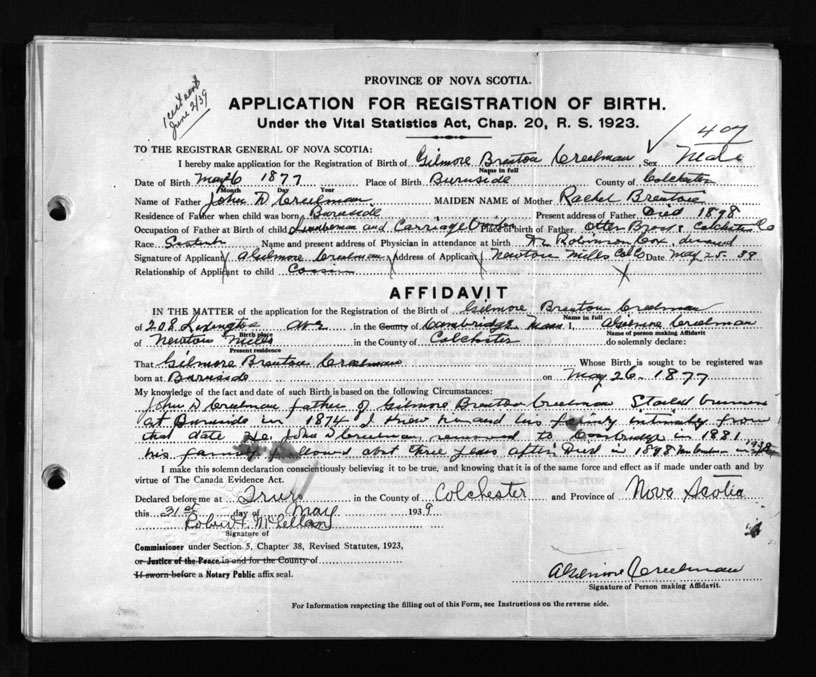 1 cert sent
June 2/39
PROVINCE OF NOVA SCOTIA.
APPLICATION FOR REGISTRATION OF BIRTH.
Under the Vital Statistics Act, Chap. 20, R. S. 1923.
407
TO THE REGISTRAR GENERAL OF NOVA SCOTIA:
I hereby make application for the Registration of Birth of Gilmore Brenton Creelman Sex Male
Name in full
Date of Birth May 26 1877 Place of Birth Burnside County of Colchester
Month Day Year
Name of Father John D Creelman MAIDEN NAME of Mother Rachel Brenton
Residence of Father when child was born Burnside Present address of Father Died 1898
Occupation of Father at Birth of child Lumberman and Carriage Place of birth of Father Otter Brook Colchester Co
Race Scotch Name and present address of Physician in attendance at birth Dr Robinson Cox deceased
Signature of Applicant A Gilmore Creelman Address of Applicant Newton Mills Col Co Date May 25. 39
Relationship of Applicant to child Cousin
AFFIDAVIT
IN THE MATTER of the application for the Registration of the Birth of Gilmore Brenton Creelman
Name in full
of 208 Lexington Ave in the County of Cambridge Mass. I, A Gilmore Creelman
Birth place Name of person making Affidavit
of Newton Mills in the County of Colchester do solemnly declare:
Present residence
That Gilmore Brenton Creelman Whose Birth is sought to be registered was
born at Burnside on May 26. 1877
My knowledge of the fact and date of such Birth is based on the following Circumstances:
John D Creelman father of Gilmore Brenton Creelman Started business
at Burnside in 1874 I knew him and his family intimately from
that date He John D Creelman removed to Cambridge in 1881
his family followed abt three years after Died in 1898
I make this solemn declaration conscientiously believing it to be true, and knowing that it is of the same force and effect as if made under oath and by
virtue of The Canada Evidence Act.
Declared before me at Truro in the County of Colchester and Province of Nova Scotia
this 31st day of May 1939
Robert F. McLellan
Signature of
Commissioner under Section 5, Chapter 38, Revised Statutes, 1923,
or Justice of the Peace in and for the County of
If sworn before a Notary Public affix seal.
A Gilmore Creelman
Signature of Person making Affidavit.
For Information respecting the filling out of this Form, see Instructions on the reverse side.